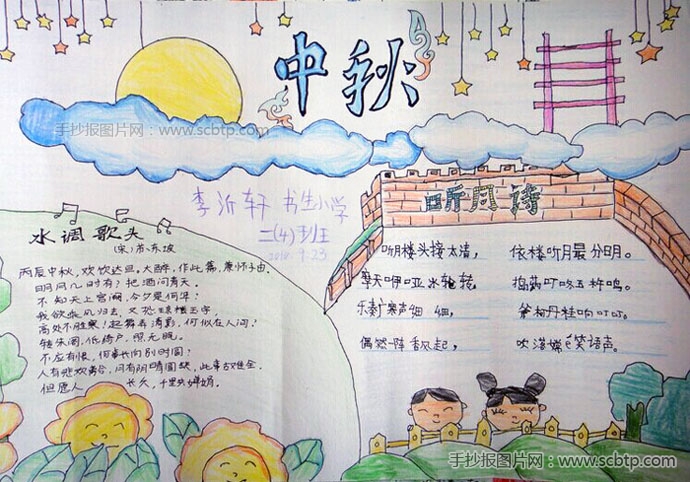 中秋
手抄报图片网：www.scbtp.com
李沂轩 书生小学
二(4)班
2010.9.23
水调歌头
(宋)苏东坡
丙辰中秋，欢饮达旦，大醉，作此篇，兼怀子由。
明月几时有？把酒问青天。
不知天上宫阙，今夕是何年？
我欲乘风归去，又恐琼楼玉宇，
高处不胜寒！起舞弄清影，何似在人间？
转朱阁，低绮户，照无眠。
不应有恨，何事长向别时圆？
人有悲欢离合，月有阴晴圆缺，此事古难全。
但愿人 长久，千里共婵娟。
听月诗
听月楼头接太清， 依楼听月最分明。
摩天咿哑冰轮转， 捣药叮咚玉杵鸣。
乐奏 声细细， 斧柯丹桂响叮叮。
偶然一阵香风起， 吹落嫦娥笑语声。
手抄报图片网：www.scbtp.com